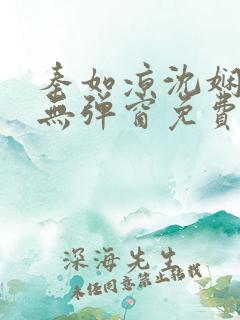 秦如凉沈娴
無彈窗免費
深海先生
未经同意禁止转载